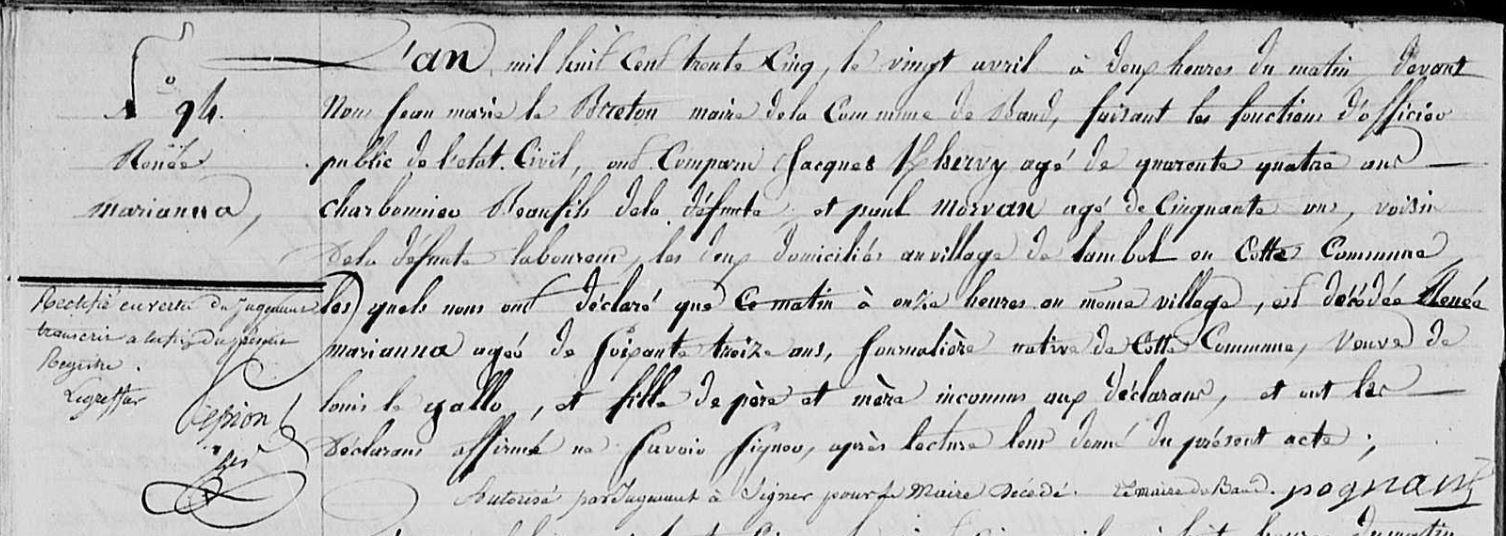 N° 94.
Renée
marianna,
Rectifié en vertu du Jugement
transcrit a la fin du présent
Registre.
Le greffier
L'an mil huit Cent trente Cinq, le vingt avril à deux heures du matin devant
Nous Jean marie le Breton maire de la Commune de Baud, faisant les fonctions d'officier
public de l'etat. Civil, ont Comparu Jacques Lhervy agé de quarente quatre ans
charbonnier Beaufils de la défunte, et paul Morvan agé de Cinquante ans, voisin
De la défunte laboureur, les deux domiciliés au village de lambol en Cette Commune
les quels nous ont déclaré que Ce matin à onze heures au même village, est décédée Renée
marianna agée de soixante treize ans, Journalière native de Cette Commune, Veuve de
louis le gallo, et fille de père et mère inconnus aux déclarans, et ont les
Déclarans affirmé ne Savoir Signer, après lecture leur donné du présent acte;
Autorisé par Jugement à Signer pour le Maire décédé. Le maire de Baud.